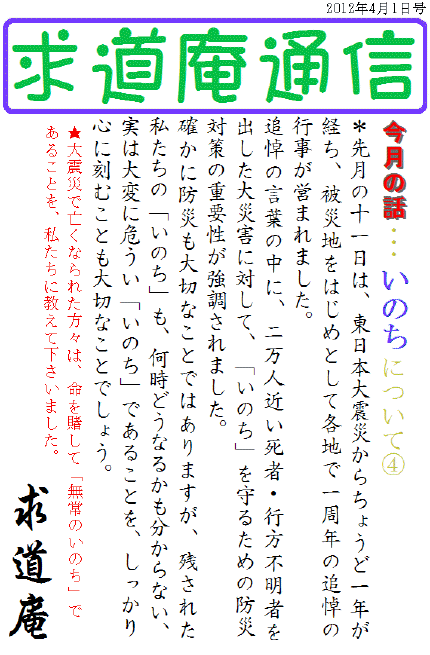 2012年4月1日号
求道庵通信
今月の話…いのちについて④
＊先月の十一日は、東日本大震災からちょうど一年が
経ち、被災地をはじめとして各地で一周年の追悼の
行事が営まれました。
追悼の言葉の中に、二万人近い死者・行方不明者を
出した大災害に対して、「いのち」を守るための防災
対策の重要性が強調されました。
確かに防災も大切なことではありますが、残された
私たちの「いのち」も、何時どうなるかも分からない、
実は大変に危うい「いのち」であることを、しっかり
心に刻むことも大切なことでしょう。
★大震災で亡くなられた方々は、命を賭して「無常のいのち」で
あることを、私たちに教えて下さいました。
求道庵